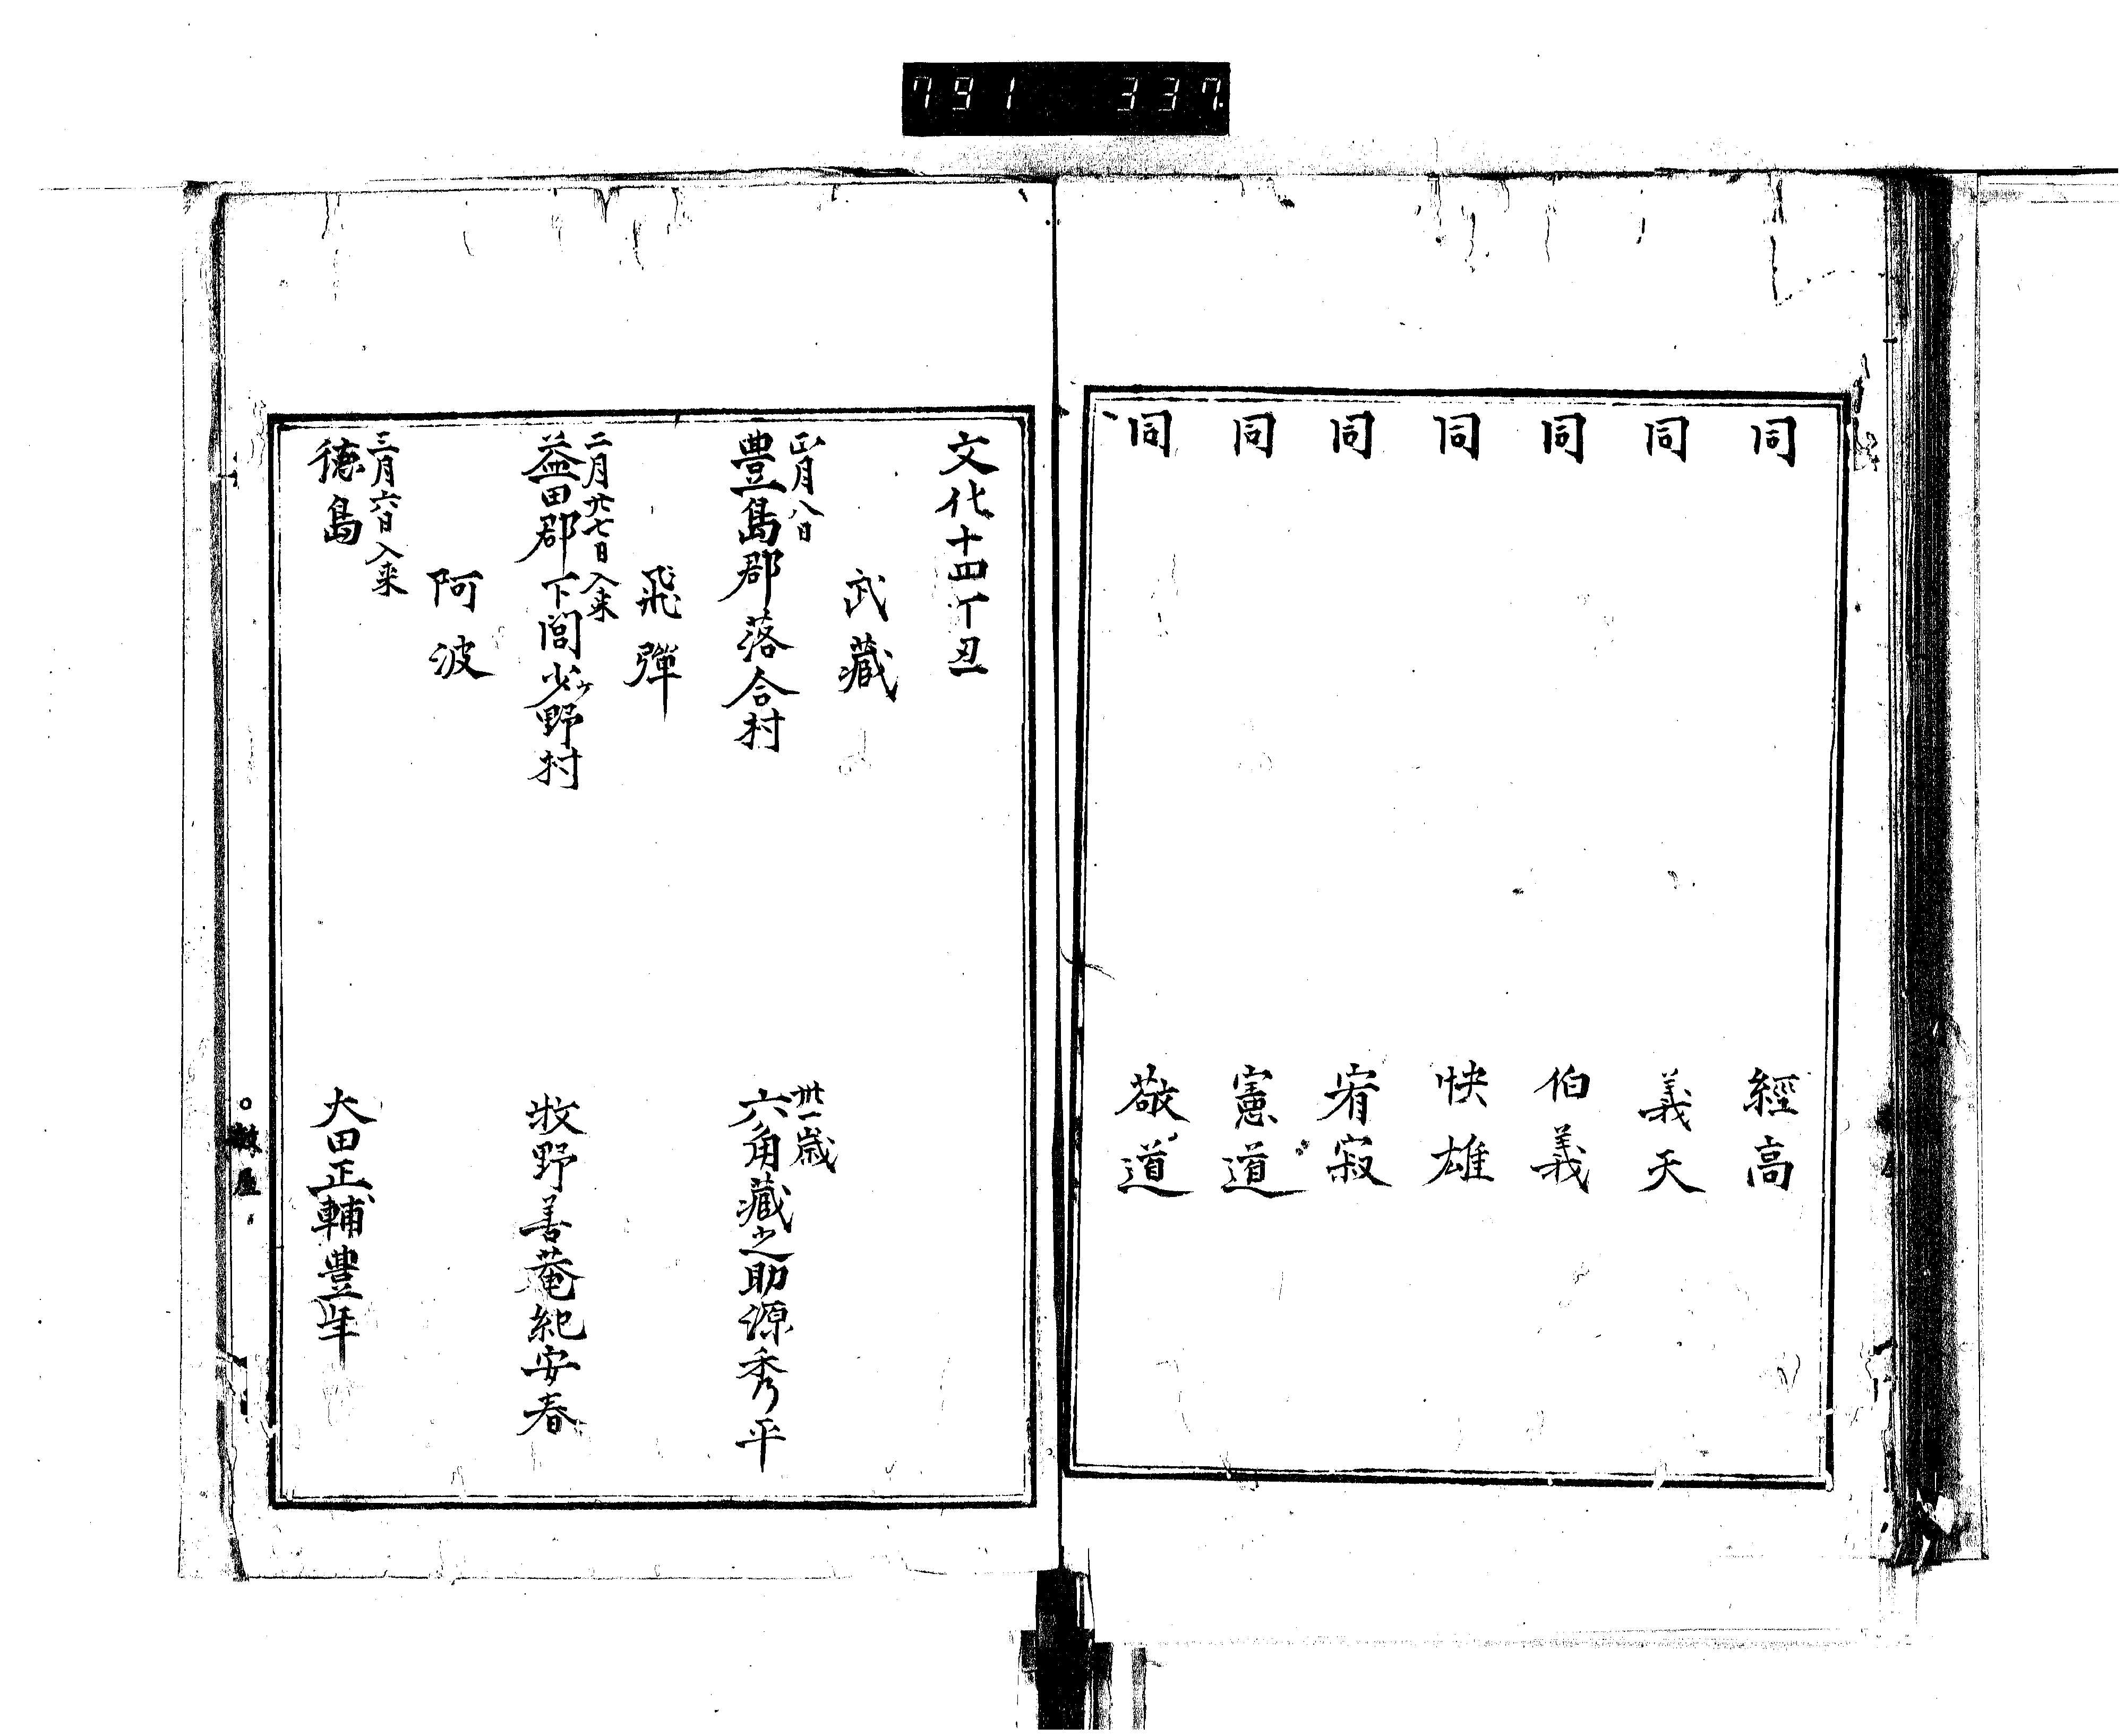 791 337
同 經高
同 義天
同 伯義
同 快雄
同 宥寂
同 憲道
同 敬道
文化十四丁丑
武藏
正月八日 卅一歳
豊島郡落合村 六角藏之助源秀平
飛彈
二月廿七日入来
益田郡下呂少ケ野村 牧野善菴紀安春
阿波
三月六日入来
徳島 大田正輔豊年